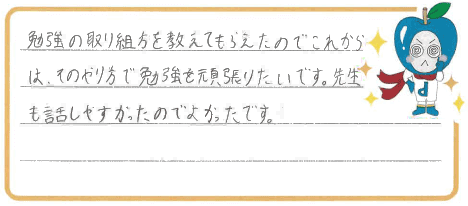 勉強の取り組方を教えてもらえたのでこれから
は、そのやり方で勉強を頑張りたいです。先生
も話しやすかったのでよかったです。
d